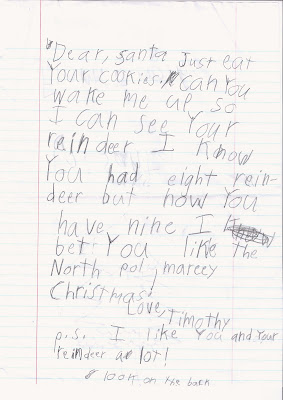 Dear, santa Just eat
Your cookies. can You
wake me up so
I can see Your
reindeer. I know
You had eight rein-
deer but now You
have nine. I
bet You like the
North pol, marcey
Christmas!
Love, Timothy
p.s. I like You and Your
reindeer a lot!
look on the back